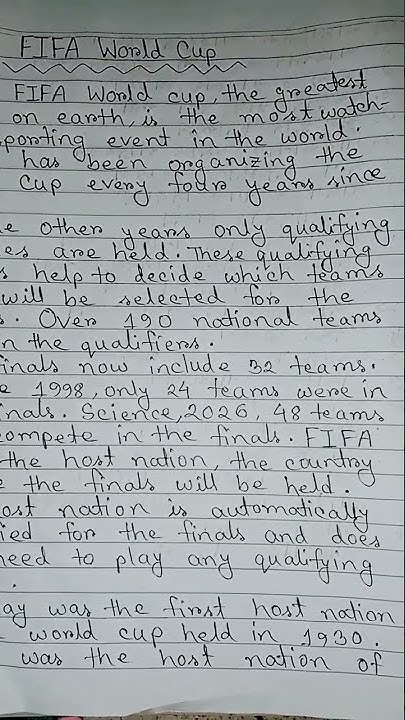 FIFA World Cup
FIFA World cup, the greatest
on earth, is the most watch-
porting event in the world.
has been organizing the
Cup every four years since
e other years only qualifying
es are held. These qualifying
s help to decide which teams
will be selected for the
s. Over 190 national teams
n the qualifiers.
inals now include 32 teams.
e 1998, only 24 teams were in
inals. Science, 2026, 48 teams
ompete in the finals. FIFA
the host nation, the country
e the finals will be held.
ost nation is automatically
ied for the finals and does
need to play any qualifying
.
ay was the first host nation
world cup held in 1930.
was the host nation of